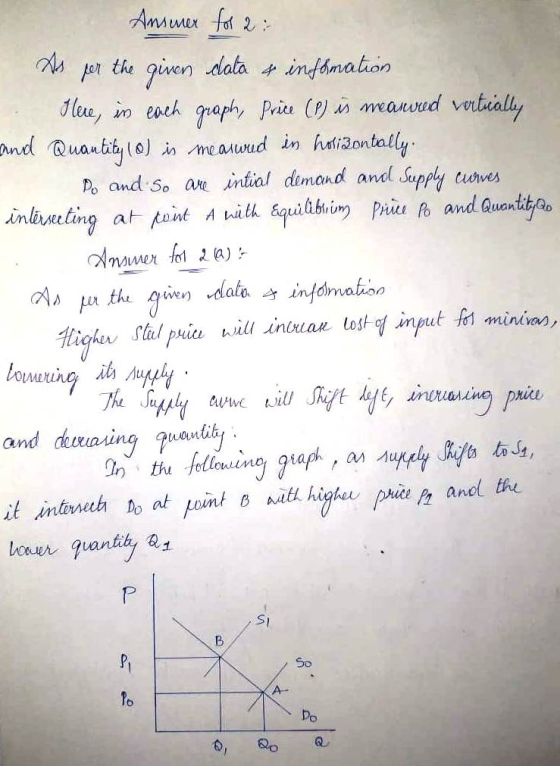 Answer for 2 :-
As per the given data & information
Here, in each graph, Price (P) is measured vertically
and Quantity (Q) is measured in horizontally.
D0 and S0 are intial demand and Supply curves
intersecting at point A with Equilibrium Price P0 and Quantity Q0
Answer for 2(a) :-
As per the given data & information
Higher Steel price will increase cost of input for minivans,
lowering its supply.
The Supply curve will Shift left, increasing price
and decreasing quantity.
In the following graph, as supply Shifts to S1,
it intersects D0 at point B with higher price P1 and the
lower quantity Q1
P
S1
B
P1
S0
P0
A
D0
Q1 Q0 Q